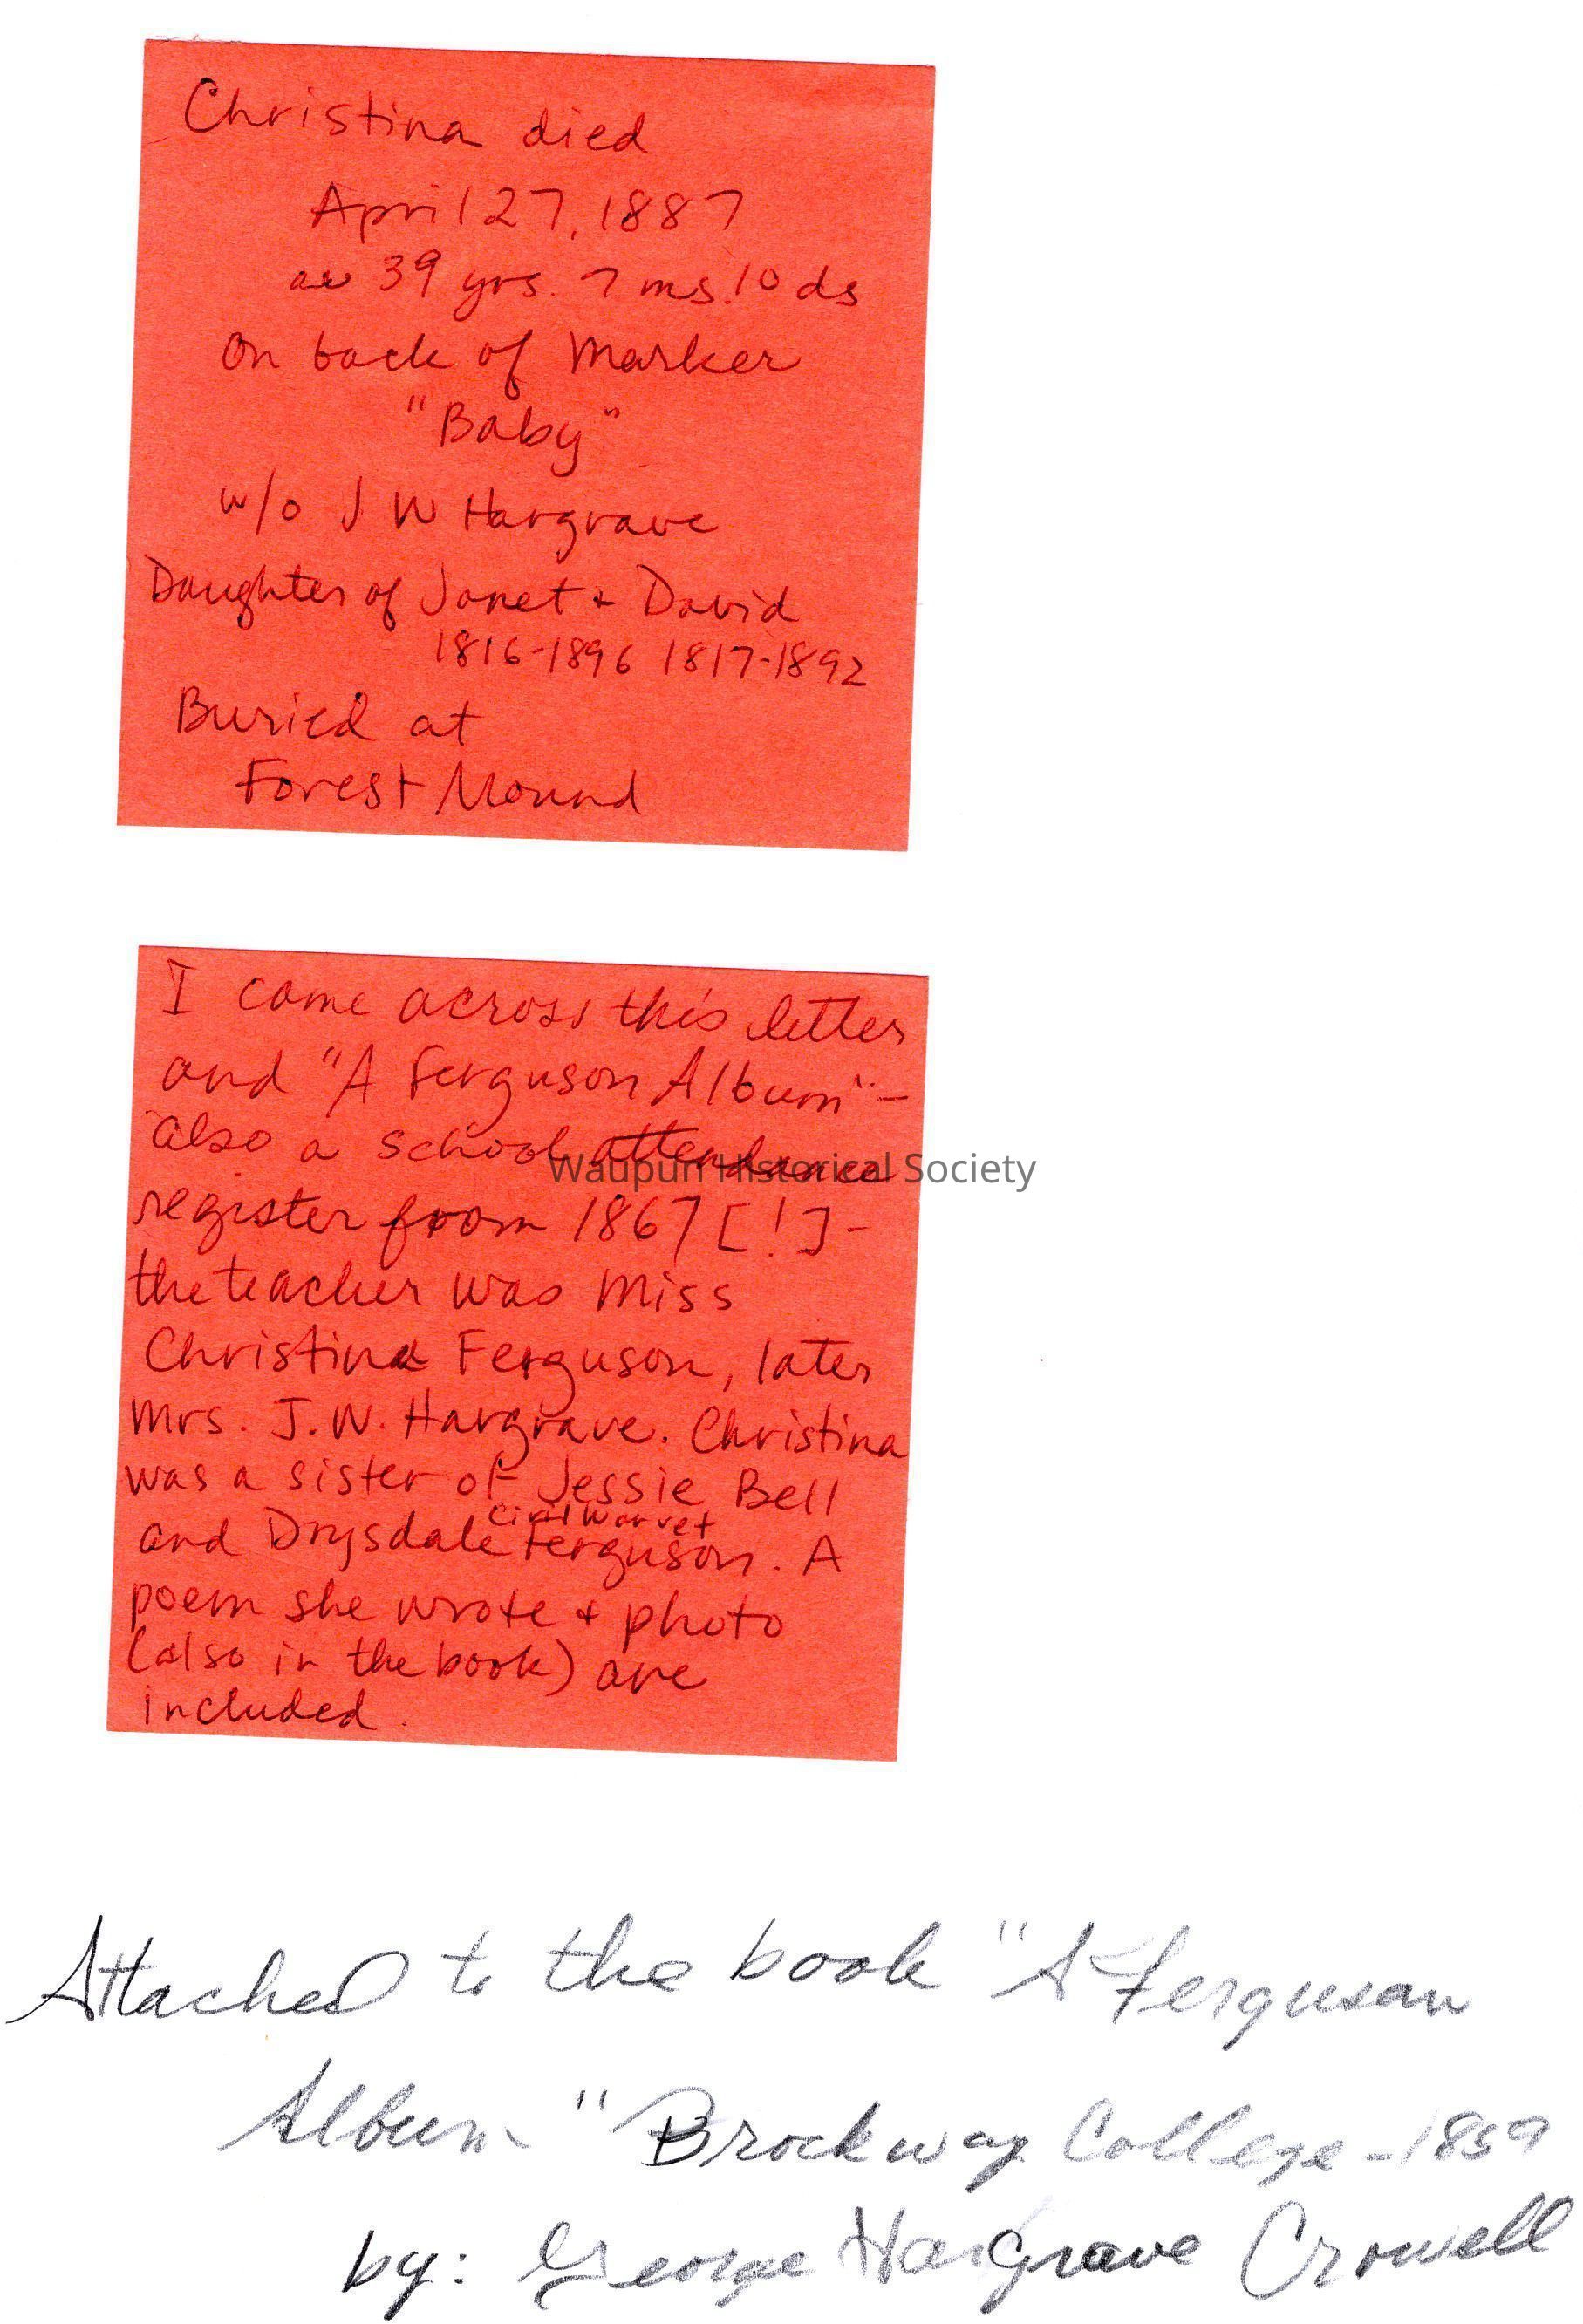 Christina died
April 27, 1887
ae 39 yrs. 7 ms. 10 ds
On back of Marker
"Baby"
w/o J W Hargrave
Daughter of Janet + David
1816-1896 1817-1892
Buried at
Forest Mound
I came across this letter
and "A Ferguson Album" -
also a school attendance
register from 1867 [!] -
the teacher was Miss
Christina Ferguson, later
Mrs. J.W. Hargrave. Christina
was a sister of Jessie Bell
Civil War vet
and Drysdale Ferguson. A
poem she wrote + photo
(also in the book) are
included.
Waupun Historical Society
Attached to the book "A Ferguson
Album - " Brockway College - 1859
by: George Hargrave Crowell